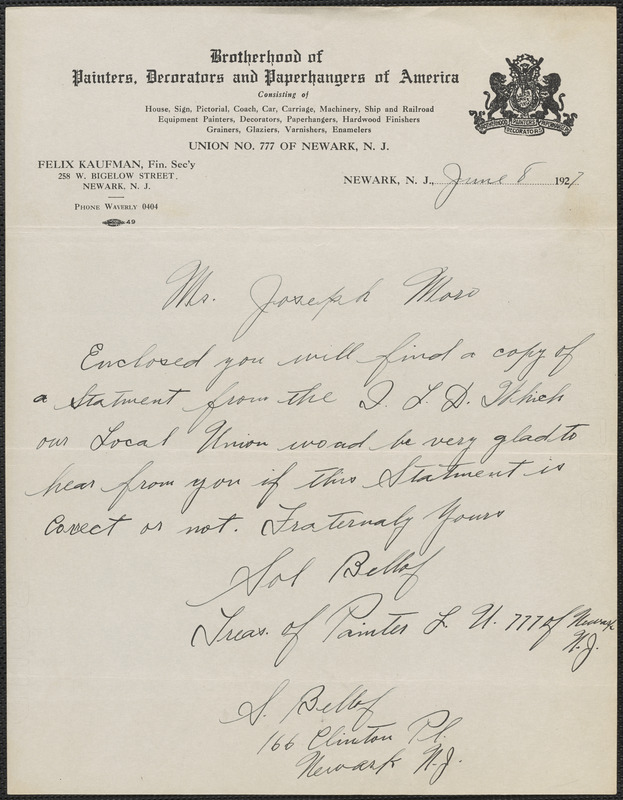 Brotherhood of
Painters, Decorators and Paperhangers of America
Consisting of
House, Sign, Pictorial, Coach, Car, Carriage, Machinery, Ship and Railroad
Equipment Painters, Decorators, Paperhangers, Hardwood Finishers
Grainers, Glaziers, Varnishers, Enamelers
UNION NO. 777 OF NEWARK, N. J.
BROTHERHOOD PAINTERS PAPERHANGERS
DECORATORS
FELIX KAUFMAN, Fin. Sec'y
258 W. BIGELOW STREET,
NEWARK, N. J.
PHONE WAVERLY 0404
49
NEWARK, N. J., June 8 1927
Mr. Joseph Moro
Enclosed you will find a copy of
a Statment from the I. L. D. Which
our Local Union woud be very glad to
hear from you if this Statment is
Corect or not. Fraternaly Yours
Sol Bellof
Treas. of Painter L. U. 777 of Newark
N. J.
S. Bellof
166 Clinton Pl.
Newark N. J.